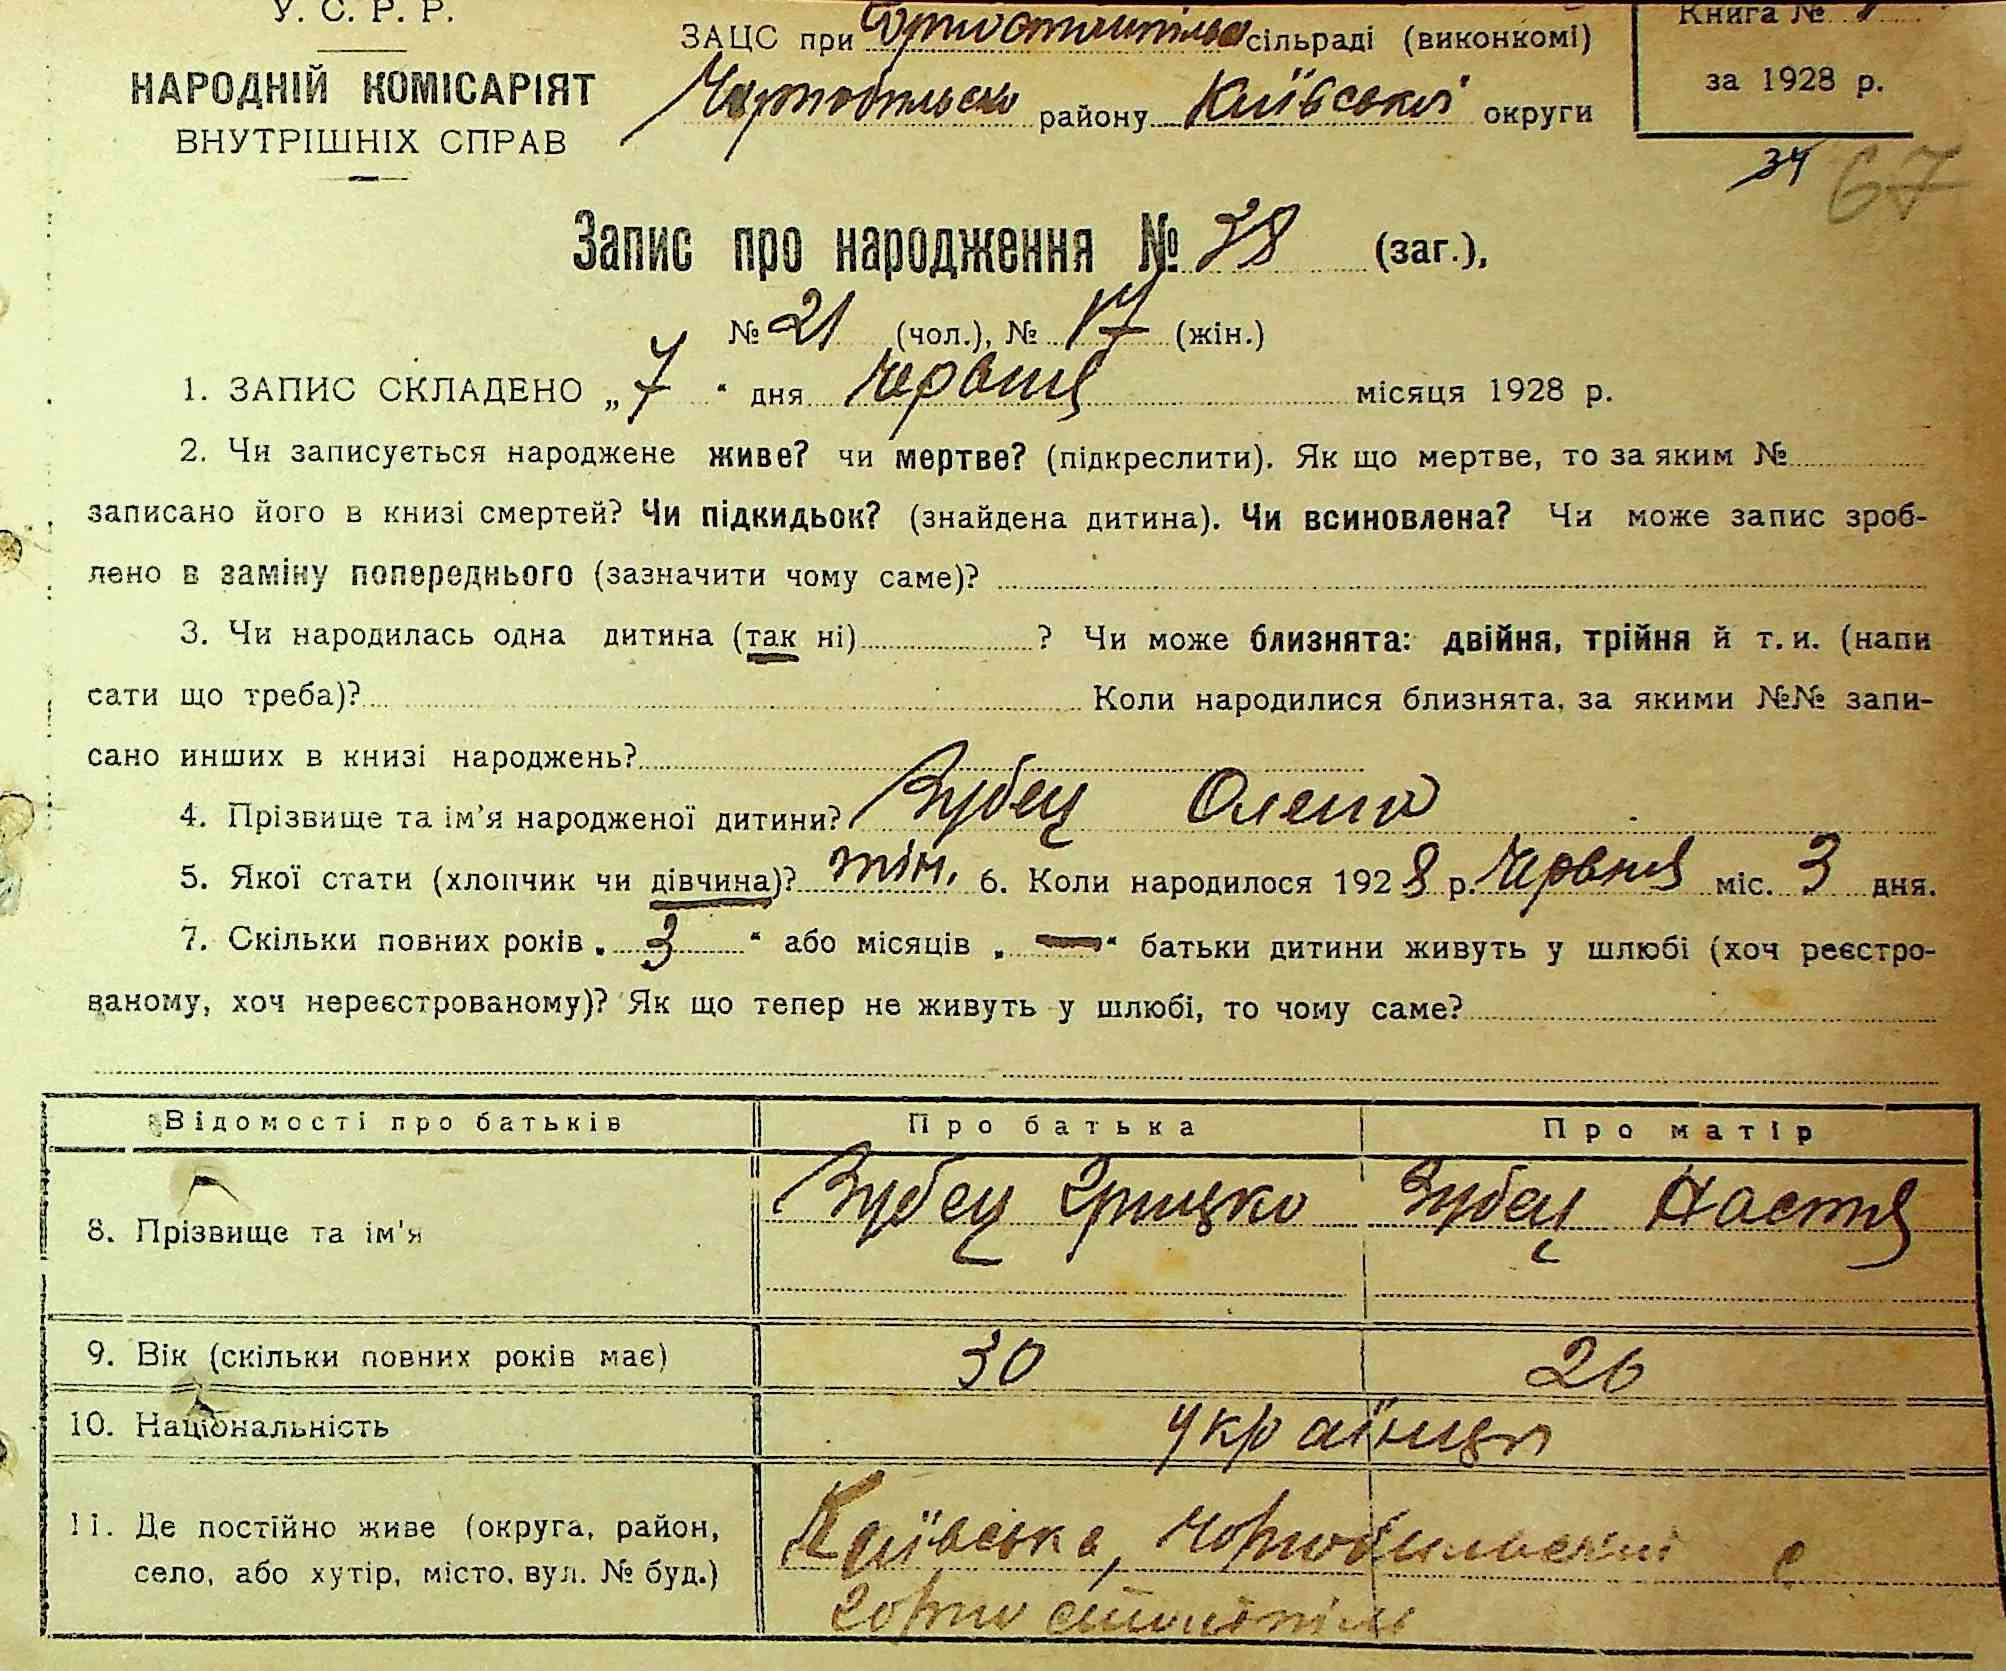 У. С. Р. Р.
НАРОДНІЙ КОМІСАРІЯТ
ВНУТРІШНІХ СПРАВ
ЗАЦС при Горностайпільс сільраді (виконкомі)
Чорнобильсько району Київської округи
Книга №
за 1928 р.
34 67
Запис про народження № 38 (заг.),
№ 21 (чол.), № 17 (жін.)
1. ЗАПИС СКЛАДЕНО „7“ дня червня місяця 1928 р.
2. Чи записується народжене живе? чи мертве? (підкреслити). Як що мертве, то за яким №
записано його в книзі смертей? Чи підкидьок? (знайдена дитина). Чи всиновлена? Чи може запис зроб-
лено в заміну попереднього (зазначити чому саме)?
3. Чи народилась одна дитина (так ні) ? Чи може близнята: двійня, трійня й т. и. (напи
сати що треба)? Коли народилися близнята, за якими №№ запи-
сано инших в книзі народжень?
4. Прізвище та ім'я народженої дитини? Зубец Олена
5. Якої стати (хлопчик чи дівчина)? жін. 6. Коли народилося 1928 р. червня міс. 3 дня.
7. Скільки повних років „3“ або місяців „—“ батьки дитини живуть у шлюбі (хоч реєстро-
ваному, хоч нереєстрованому)? Як що тепер не живуть у шлюбі, то чому саме?
Відомості про батьків Про батька Про матір
8. Прізвище та ім'я Зубец Грицко Зубец Настя
9. Вік (скільки повних років має) 30 26
10. Національність українци
11. Де постійно живе (округа, район, село, або хутір, місто, вул. № буд.) Київська, Чорнобильский с
Горностайпіль